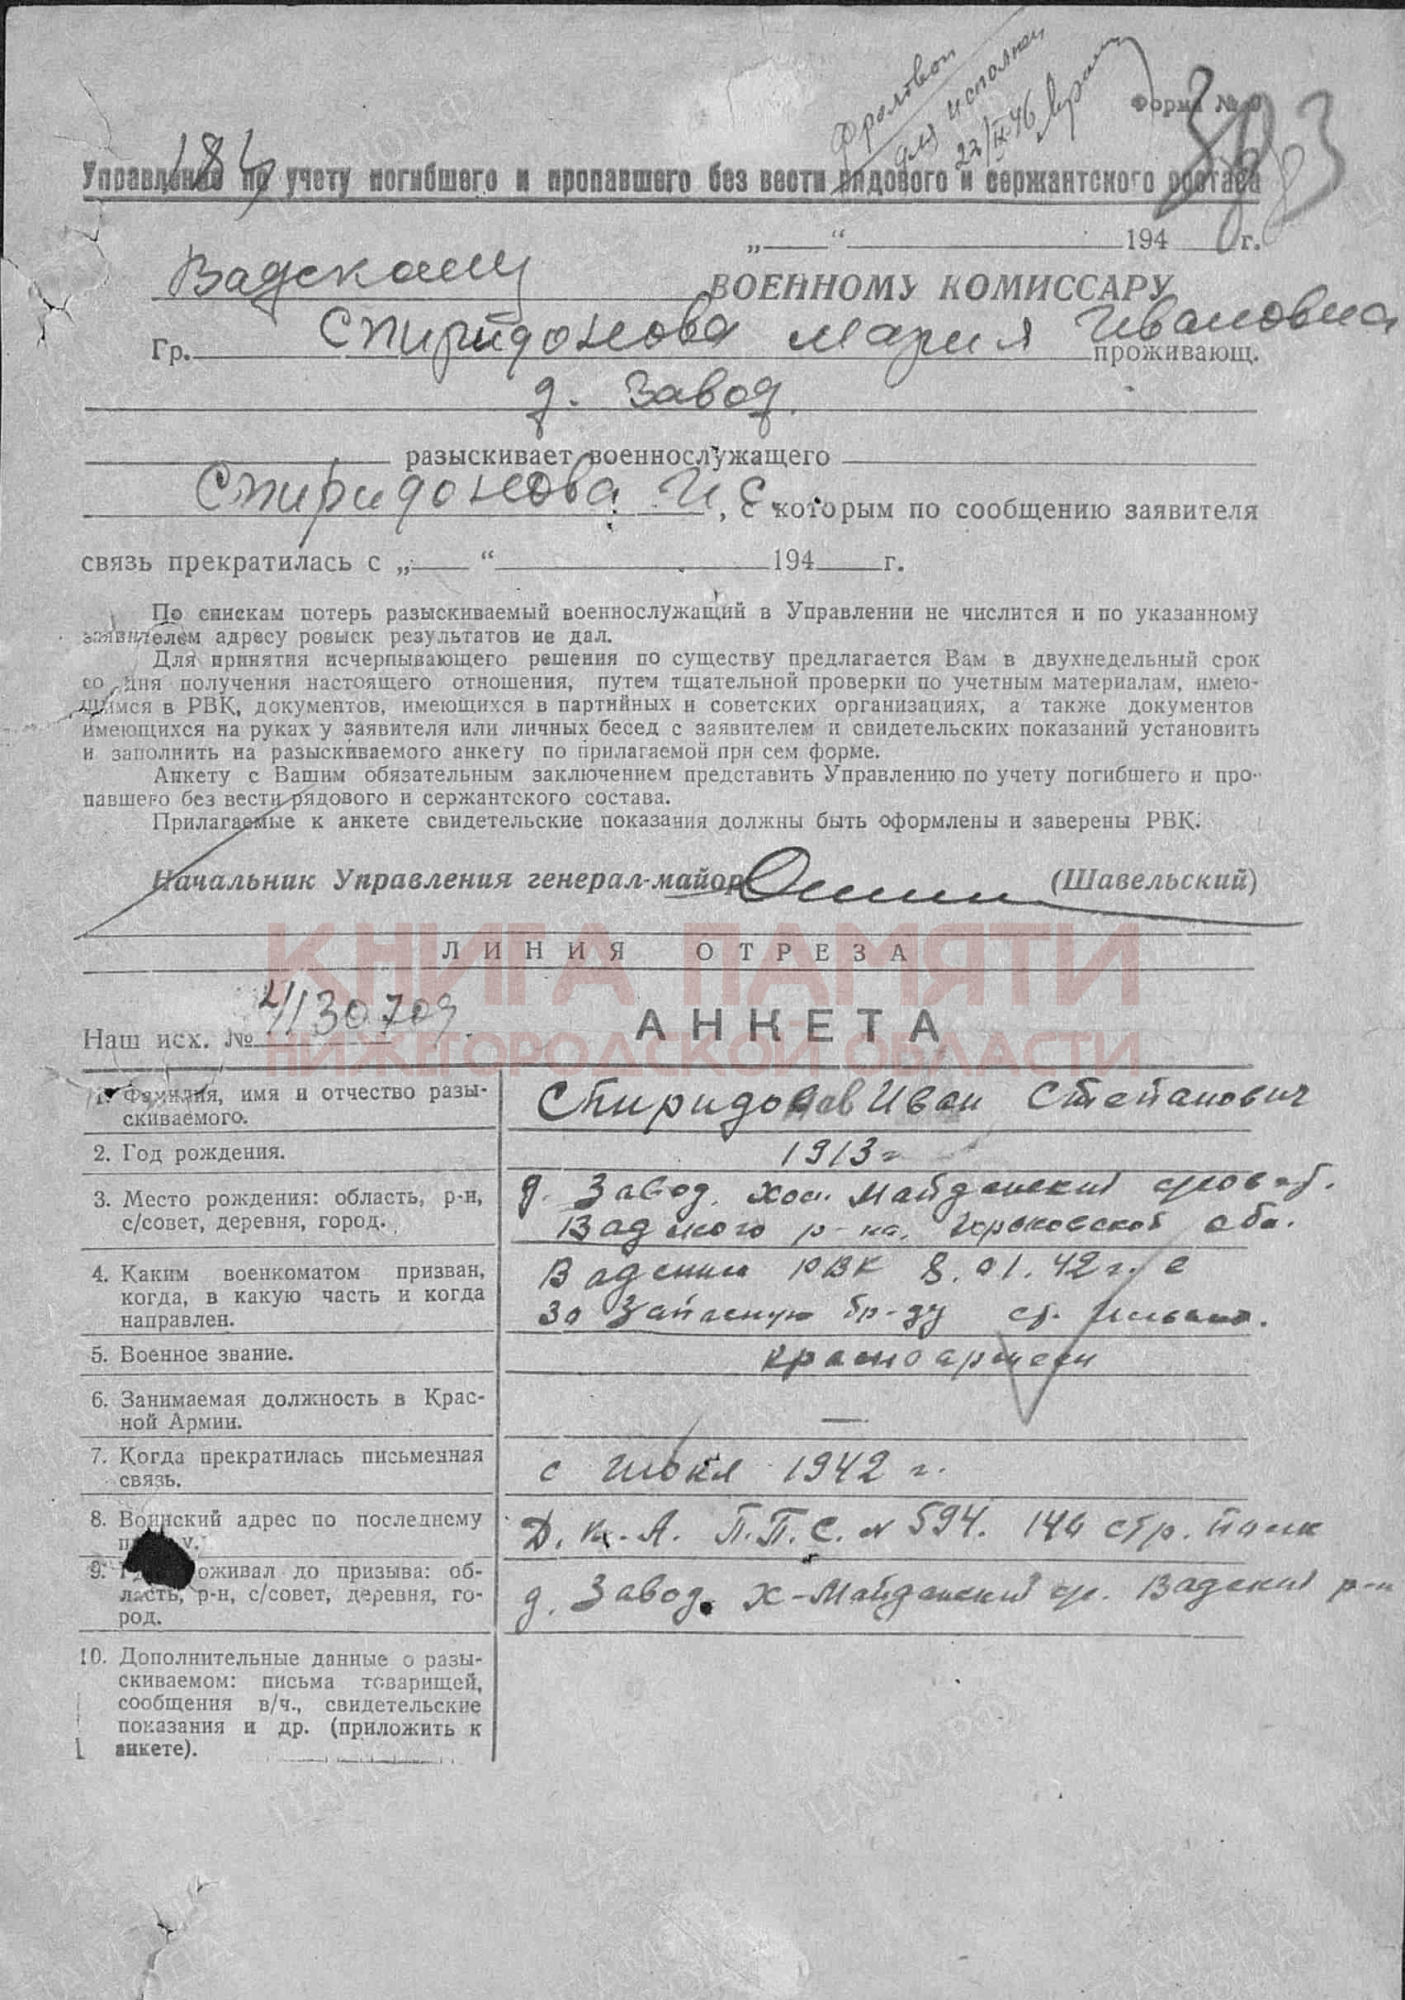 Фроловой
для исполнен
22/IX 46
Форма №
Управление по учету погибшего и пропавшего без вести рядового и сержантского состава
„——“ 194 г.
Вадскому ВОЕННОМУ КОМИССАРУ
Гр. Спиридонова Мария Ивановна проживающ.
д. Завод.
разыскивает военнослужащего
Спиридонова И С, с которым по сообщению заявителя
связь прекратилась с „ “ 194 г.
По спискам потерь разыскиваемый военнослужащий в Управлении не числится и по указанному
заявителем адресу розыск результатов не дал.
Для принятия исчерпывающего решения по существу предлагается Вам в двухнедельный срок
со дня получения настоящего отношения, путем тщательной проверки по учетным материалам, имею-
щимся в РВК, документов, имеющихся в партийных и советских организациях, а также документов
имеющихся на руках у заявителя или личных бесед с заявителем и свидетельских показаний установить
и заполнить на разыскиваемого анкету по прилагаемой при сем форме.
Анкету с Вашим обязательным заключением представить Управлению по учету погибшего и про-
павшего без вести рядового и сержантского состава.
Прилагаемые к анкете свидетельские показания должны быть оформлены и заверены РВК.
Начальник Управления генерал-майор (Шавельский)
ЛИНИЯ ОТРЕЗА
КНИГА ПАМЯТИ
НИЖЕГОРОДСКОЙ ОБЛАСТИ
Наш исх. № 4/130709
АНКЕТА
1. Фамилия, имя и отчество разы-
скиваемого.
Спиридонов Иван Степанович
2. Год рождения.
1913 г
3. Место рождения: область, р-н,
с/совет, деревня, город.
д. Завод. Хоз. Майданский
Вадского р-на, Горьковской обл.
4. Каким военкоматом призван,
когда, в какую часть и когда
направлен.
Вадским РВК 8.01.42 г. в
30 Запасную бр-ду ст.
5. Военное звание.
красноармеец
6. Занимаемая должность в Крас-
ной Армии.
—
7. Когда прекратилась письменная
связь.
с июля 1942 г.
8. Воинский адрес по последнему
Д.К.А. П.П.С. № 594. 140 стр. полк
9. оживал до призыва: об-
ласть, р-н, с/совет, деревня, го-
род.
д. Завод. Х-Майданский с/с. Вадский р-н
10. Дополнительные данные о разы-
скиваемом: письма товарищей,
сообщения в/ч., свидетельские
показания и др. (приложить к
анкете).